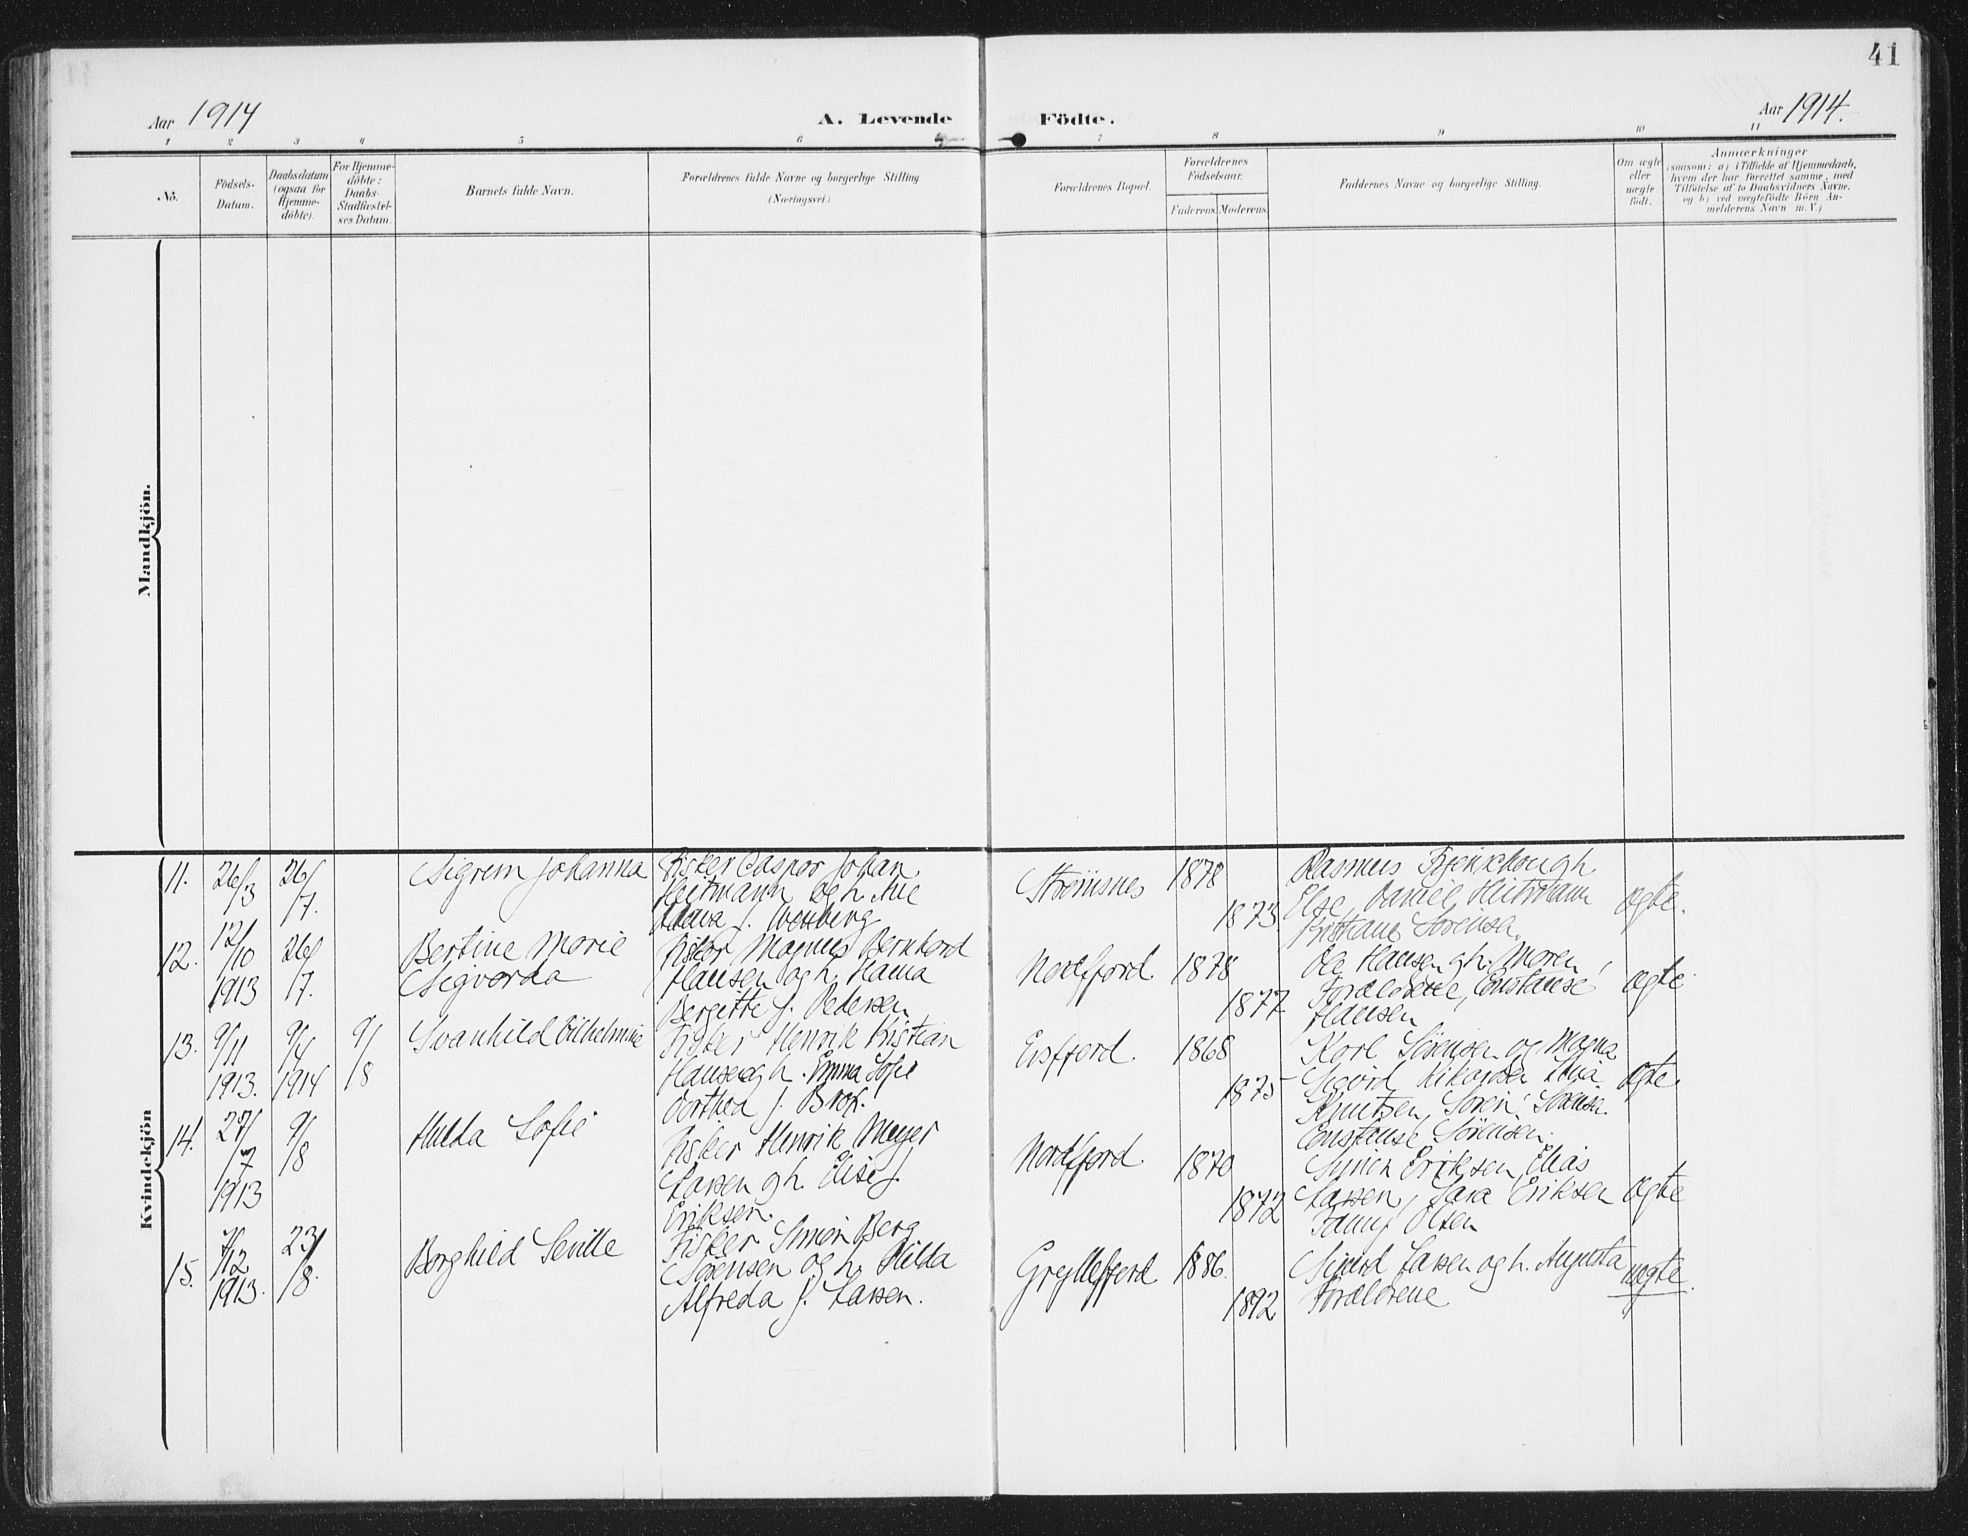 41
Aar 1914
A. Levende
Födte.
Aar 1914.
1 2 3 4 5 6 7 8 9 10 11
No.
Födsels-Datum.
Daabsdatum (ogsaa for Hjemme-döbte).
For Hjemme-döbte: Daabs-Stadfæstel-ses Datum.
Barnets fulde Navn.
Forældrenes fulde Navne og borgerlige Stilling.
(Næringsvei.)
Forældrenes Bopæl.
Forældrenes Födselsaar.
Faderens. Moderens.
Faddernes Navne og borgerlige Stilling.
Om ægte eller uægte födt.
Anmærkninger
(saasom: a) i Tilfælde af Hjemmedaab,
hvem der har forrettet samme, med
Tilföielse af to Daabsvidners Navne,
og b) ved uægtefödte Börn An-
melderens Navn m. V.)
Mandkjön.
Kvindekjön
11. 26/3 26/7.
Sigrem Johanna
Fisker Caspor Johan
Heitmann og h. Ane
J.
Strømsnes 1878
1873
Rasmus
Else, Daniel Heitmann
Kristiane Sørensen.
ægte.
12. 12/10 1913 26/7.
Bertine Marie
Sigvarda
Fisker Magnus Bernhard
Hansen og h. Hanna
Bergitte f. Pedersen
Nordfjord 1878
1877
Ole Hansen gh. Moren,
Forældrene, Constanse
Hansen
ægte
13. 9/11 1913. 9/4 1914 9/8
Svanhild Vilhelmine
Fisker Henrik Kristian
Hansen gh. Emma Sofie
Dorthea f. Brox.
Eisfjord. 1868
1875
Karl Sørensen og Magna
Sigvrd
Knutsen, Søren Sørensen.
Constanse Sørensen.
ægte
14. 27/7 1913 9/8
Hulda Sofie
Fisker Henrik Meyer
Lassen gh. Elise f.
Eriksen.
Nordfjord 1870
1872
Simen Eriksen, Elias
Lassen, Sara Eriksen
Fanny Olsen
ægte
15. 7/12 1913. 23/8.
Borghild Seville
Fisker Simon Berg
Sørensen og h. Hilda
Alfreda f. Lassen.
Gryllefjord 1886.
1892
Sivard Lassen og h. Augusta
Forældrene
uægte.